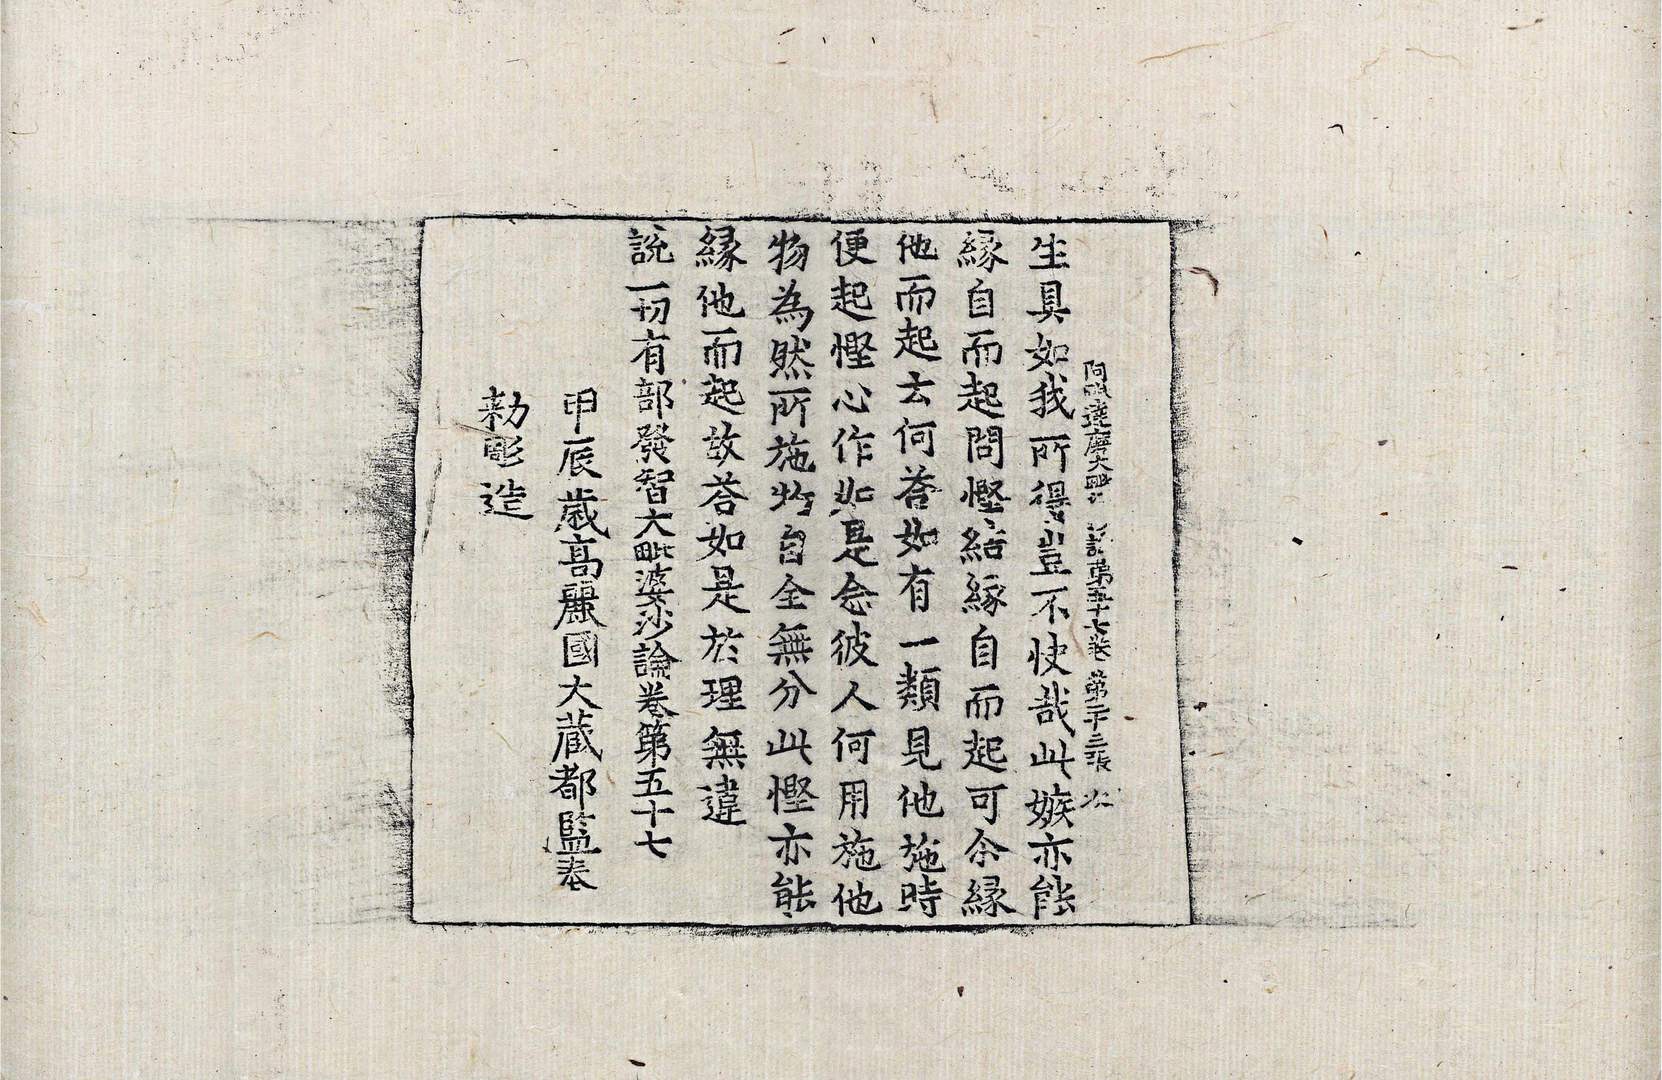 阿毗達磨大毗 論第五十七卷 第二十三張 必
生具如我所得豈不快哉此嫉亦能
緣自而起問慳結緣自而起可尒緣
他而起云何荅如有一類見他施時
便起慳心作如是念彼人何用施他
物為然所施物自全無分此慳亦能
緣他而起故荅如是於理無違
說一切有部發智大毗婆沙論卷第五十七
甲辰歲高麗國大藏都監奉
勑彫造